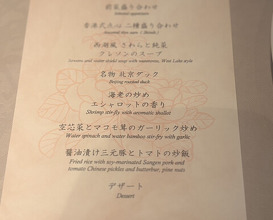 前菜盛り合わせ
香港式点心 二種盛り合わせ
西湖風 さわらと純菜
クレソンのスープ
名物 北京ダック
Beijing roasted duck
海老の炒め
エシャロットの香り
Shrimp stir-fry with aromatic shallot
空芯菜とマコモ茸のガーリック炒め
Water spinach and water bamboo stir-fry with garlic
醤油漬け三元豚とトマトの炒飯
Fried rice with soy-marinated Sangen pork and
tomato Chinese pickles and butterbur, pine nuts
デザート
Dessert